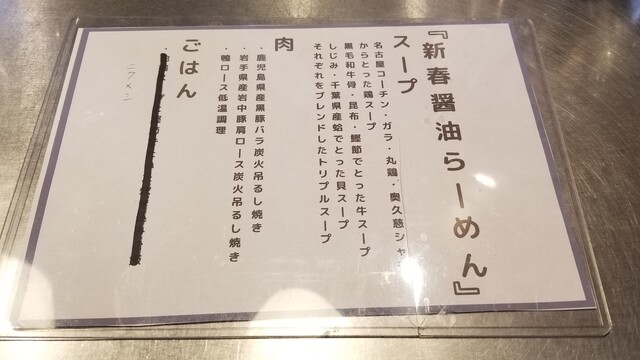 『新春醤油らーめん』
スープ
名古屋コーチン・ガラ・丸鶏・奥久慈シャ
からとった鶏スープ
黒毛和牛骨・昆布・鰹節でとった牛スープ
しじみ・千葉県産蛤でとった貝スープ
それぞれをブレンドしたトリプルスープ
肉
・鹿児島県産黒豚バラ炭火吊るし焼き
・岩手県産岩中豚肩ロース炭火吊るし焼き
・鴨ロース低温調理
ごはん